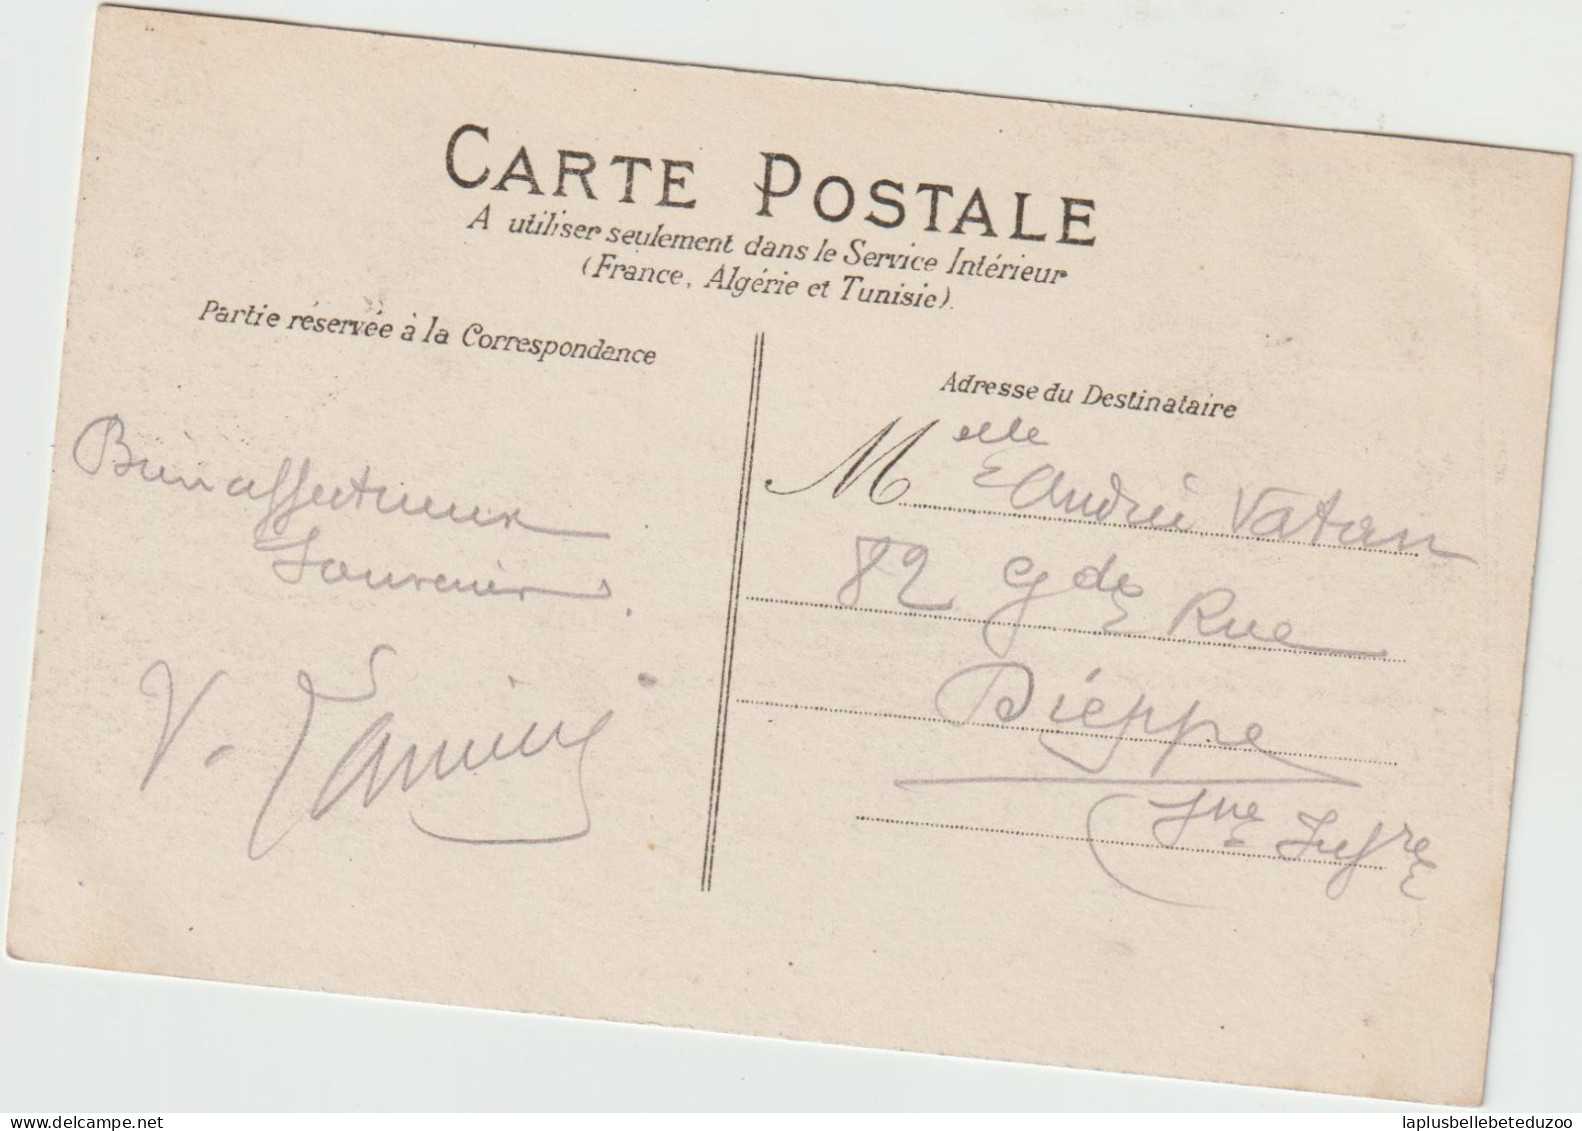 CARTE POSTALE
A utiliser seulement dans le Service Intérieur
(France, Algérie et Tunisie).
Partie réservée à la Correspondance
Bien affectueux
Souvenir.
V.
Adresse du Destinataire
Melle Andrée Vatan
82 Gde Rue
Dieppe
Sne Infre
delcampe.net
laplusbellebeteduzoo